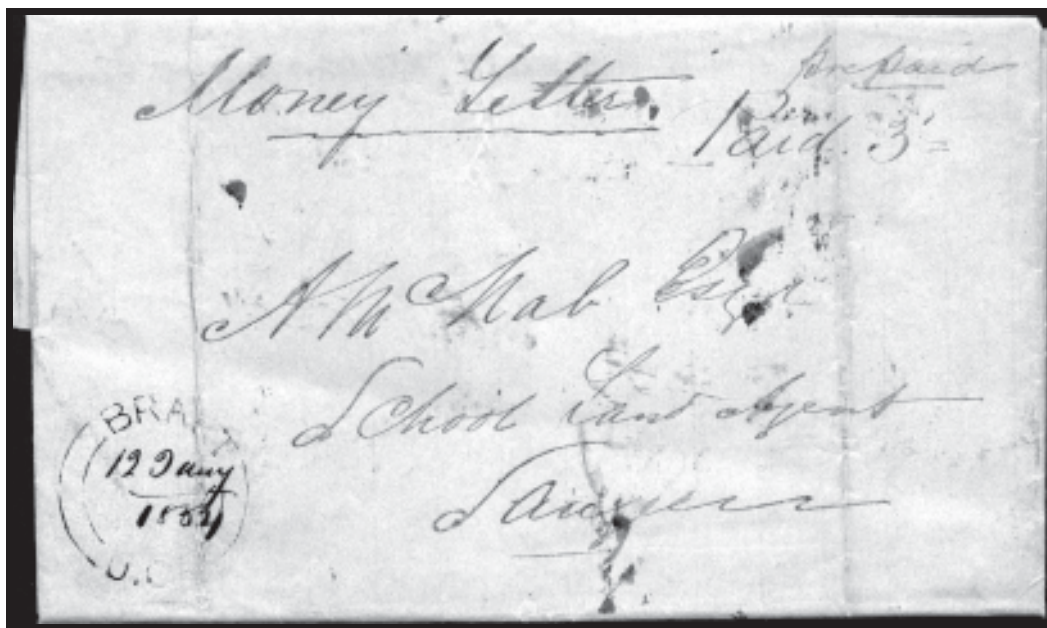 Money Letter
prepaid
Paid. 3
A McNab Esqr
School Land Agent
Saugeen
BRA
12 Jany
1854
U.C